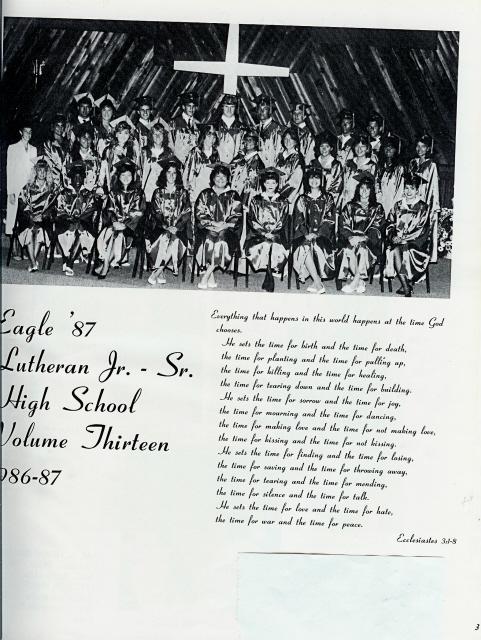 Eagle '87
Lutheran Jr. - Sr.
High School
Volume Thirteen
1986-87
Everything that happens in this world happens at the time God
chooses.
He sets the time for birth and the time for death,
the time for planting and the time for pulling up,
the time for killing and the time for healing,
the time for tearing down and the time for building.
He sets the time for sorrow and the time for joy,
the time for mourning and the time for dancing,
the time for making love and the time for not making love,
the time for kissing and the time for not kissing.
He sets the time for finding and the time for losing,
the time for saving and the time for throwing away,
the time for tearing and the time for mending,
the time for silence and the time for talk.
He sets the time for love and the time for hate,
the time for war and the time for peace.
Ecclesiastes 3:1-8
3